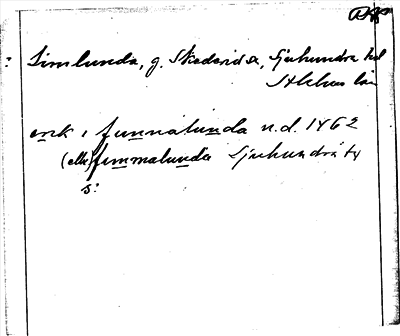 Limlunda, g. Skederid sn, Sjuhundra hd
Sthlms län
enk i funnalunda n.d. 1462
(elle) fimmalunda Sjuhundra
s: